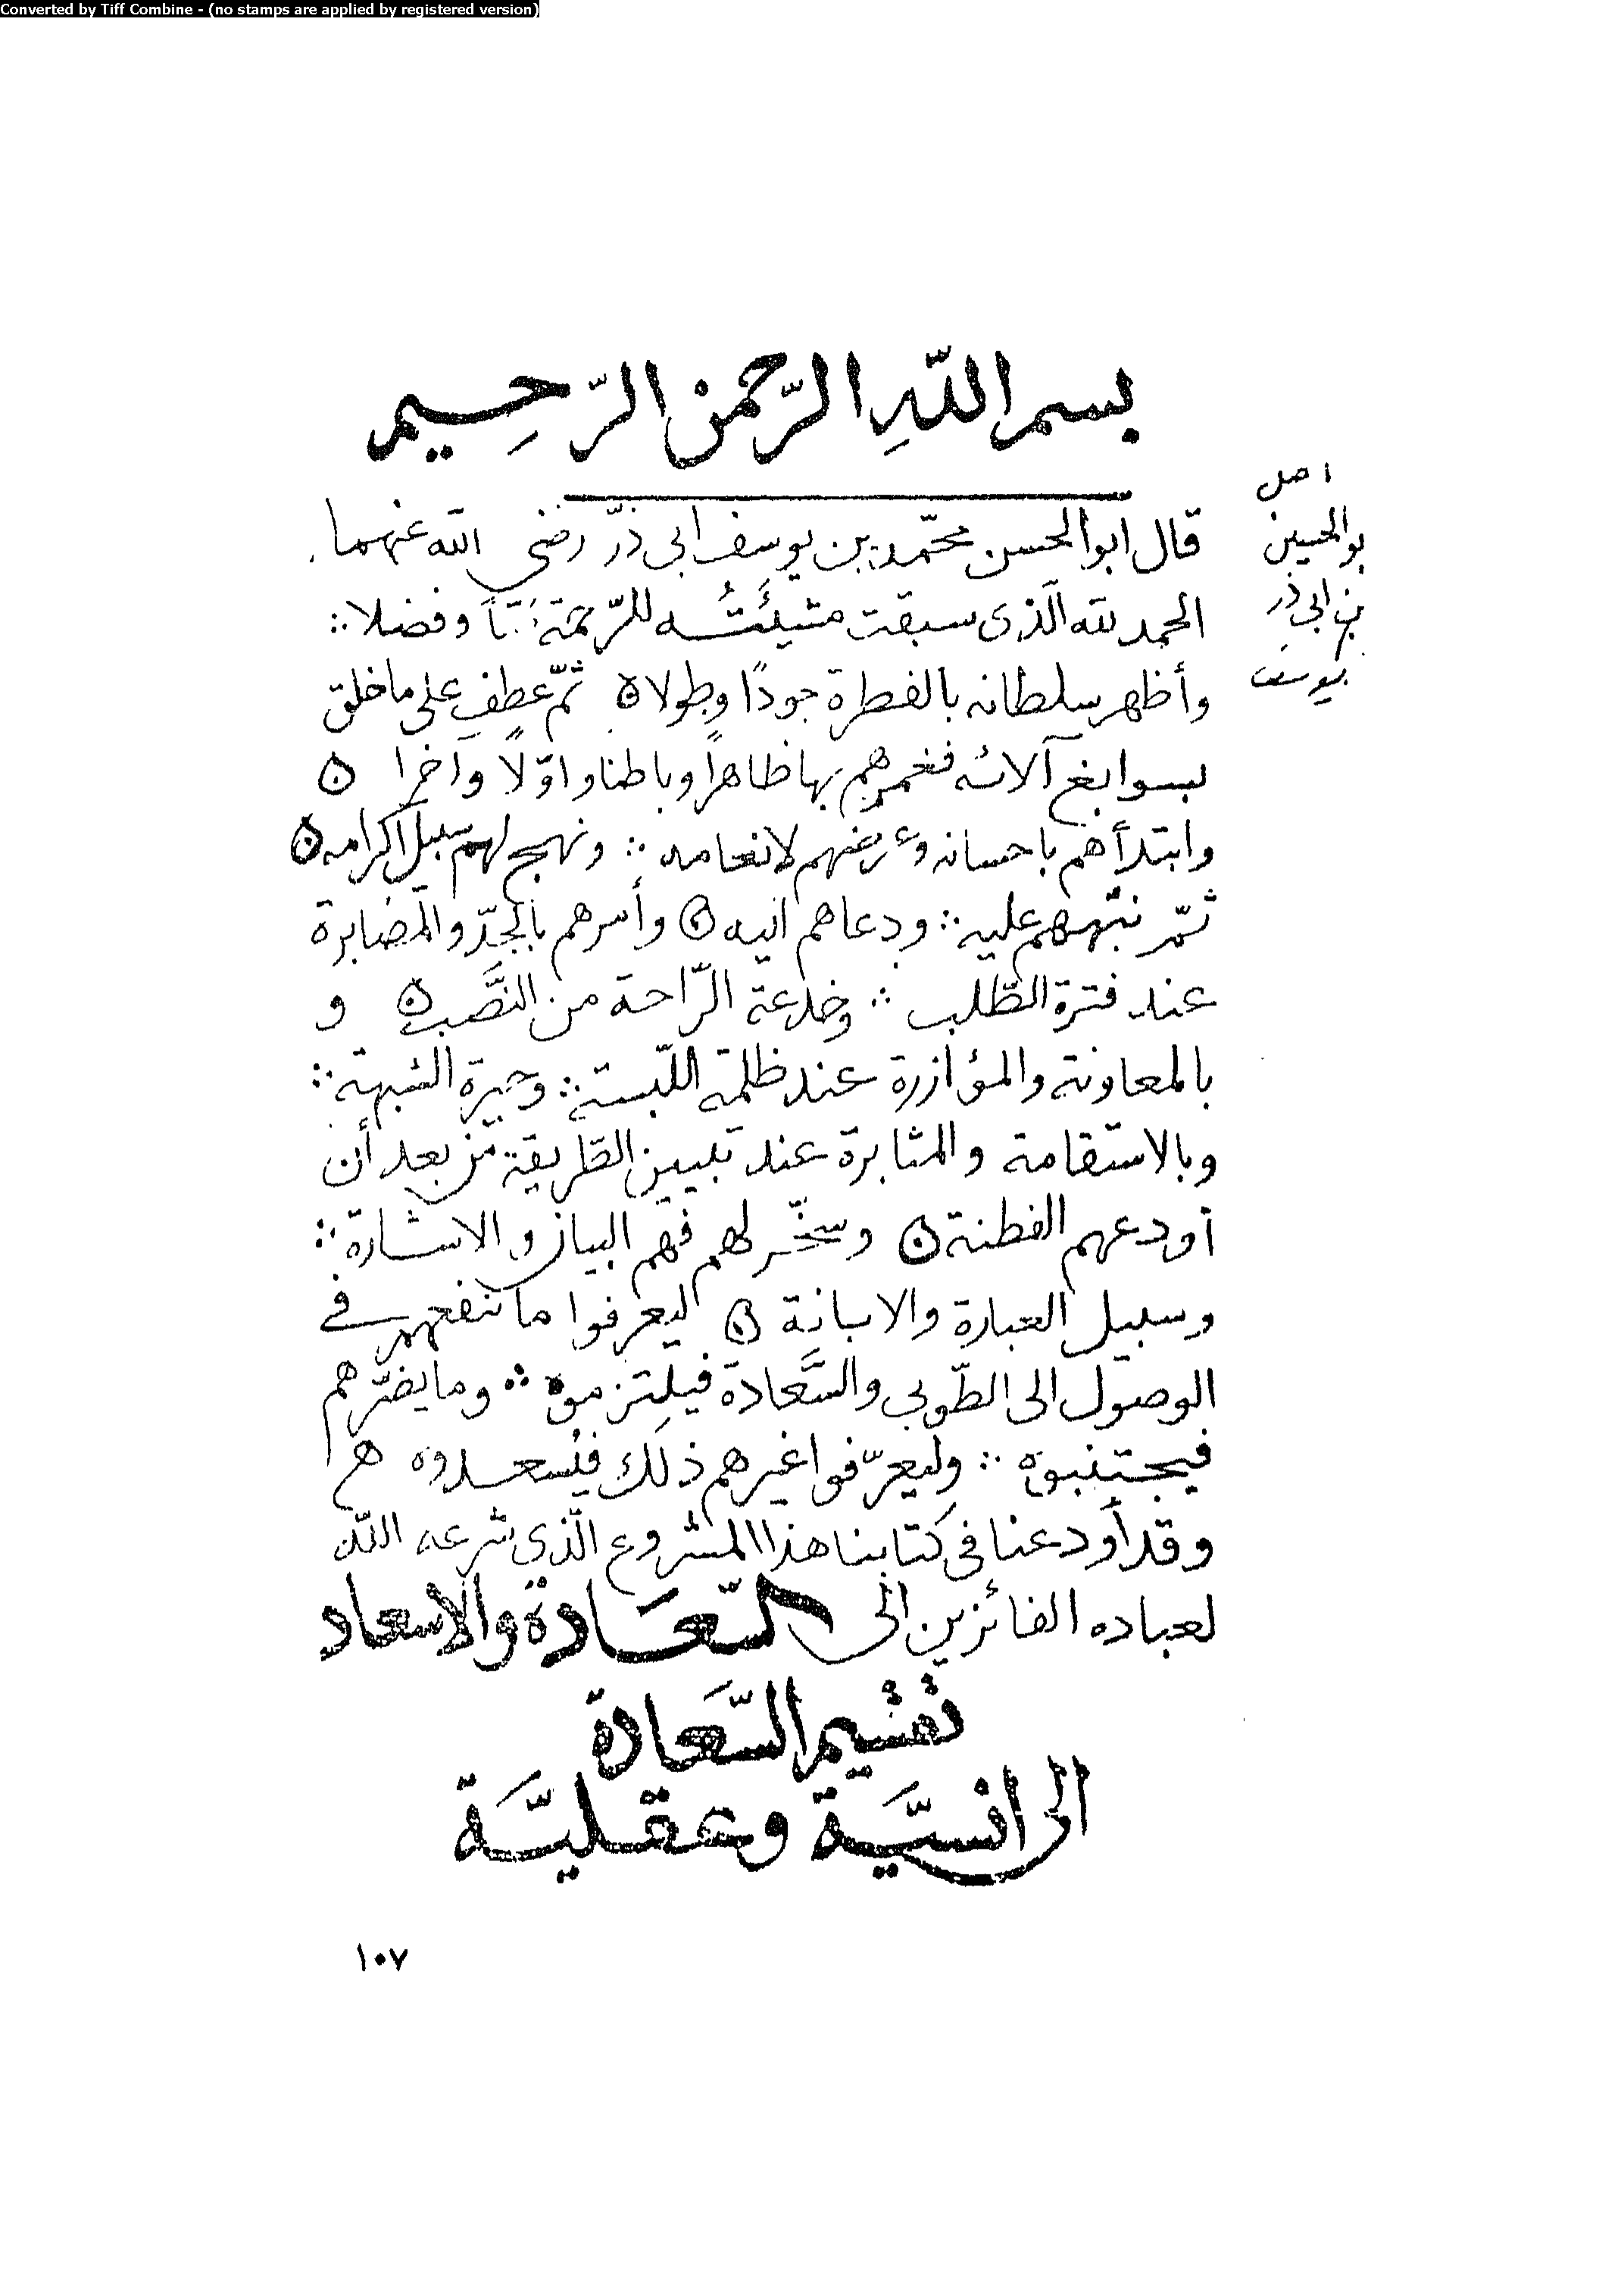 Converted by Tiff Combine - (no stamps are applied by registered version)
بسم اللّهِ الرّحمن الرّحِيم
اصل
بوالحسين
بن ابى ذر
يوسف
قال ابوالحسن محمّد بن يوسف ابى ذرّ رضى الله عنهما
الحمد لله الّذى سبقت مشيئَتُه للرّحمة وفضلا ∴
وأظهر سلطانه بالفطرة جودًا وطولا ن ثمّ عطف على ما خلق
بسوابغ آلائه فغمرهم بها ظاهراً وباطنا واوّلًا وآخرا ن
وابتدأهم باحسانه وعرضهم لانعامه ∴ ونهج لهم سبيل اكرامه ن
ثمّ نبّههم عليه ∴ ودعاهم اليه ن وأمرهم بالجدّ والمصابرة
عند فترة الطّلب ∴ وخدعة الرّاحة من النصَّب ن و
بالمعاونة والمؤازرة عند ظلمة اللّبسة ∴ وحيرة الشبهة ∴
وبالاستقامة والمثابرة عند تبيين الطّريقة من بعد أن
أودعهم الفطنة ن وسخّر لهم فهم البيان والاشارة ∴
وسبيل العبارة والابانة ن ليعرفوا ما تنفعهم فى
الوصول الى الطّوبى والسَّعادة فيلتزموه ∴ وما يضرّهم
فيجتنبوه ∴ وليعرّفوا غيرهم ذلك فيُسعدوه هم
وقد أودعنا فى كتابنا هذا المشروع الّذى شرعه اللّه
لعباده الفائزين الى السّعَادة والاسعاد
تقسيم السّعَادة
الى انسيَّة وعقليَّة
١٠٧